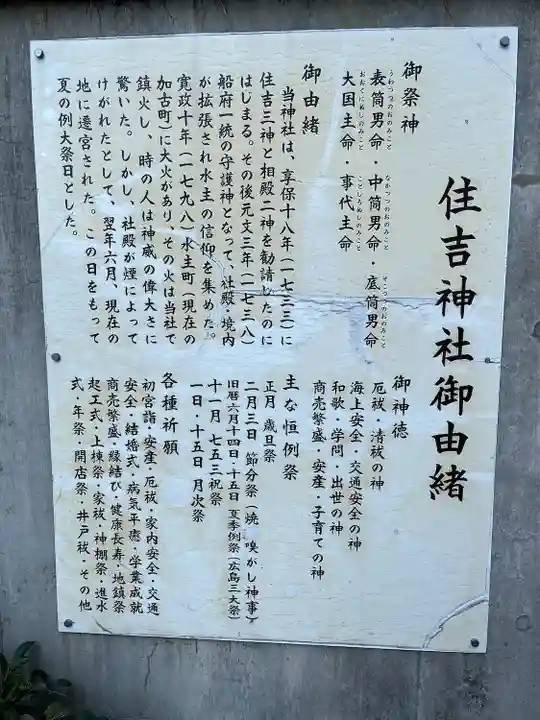 住吉神社御由緒
御祭神
表筒男命・中筒男命・底筒男命
うわつつのおのみこと
なかつつのおのみこと
そこつつのおのみこと
大国主命・事代主命
おおくにぬしのみこと
ことしろぬしのみこと
御由緒
当神社は、享保十八年（一七三三）に
住吉三神と相殿二神を勧請したのに
はじまる。その後元文三年（一七三八）
船府一統の守護神となって、社殿・境内
が拡張され水主の信仰を集めた。
寛政十年（一七九八）水主町（現在の
加古町）に大火があり、その火は当社で
鎮火し、時の人は神威の偉大さに
驚いた。しかし、社殿が煙によって
けがれたとして、翌年六月、現在の
地に遷宮された。この日をもって
夏の例大祭日とした。
御神徳
厄祓・清祓の神
海上安全・交通安全の神
和歌・学問・出世の神
商売繁盛・安産・子育ての神
主な恒例祭
正月 歳旦祭
二月三日 節分祭（焼嗅がし神事）
旧暦六月十四日・十五日 夏季例祭（広島三大祭）
十一月 七五三祝祭
一日・十五日 月次祭
各種祈願
初宮詣・安産・厄祓・家内安全・交通
安全・結婚式・病気平癒・学業成就
商売繁盛・縁結び・健康長寿・地鎮祭
起工式・上棟祭・家祓・神棚祭・進水
式・年祭・開店祭・井戸祓・その他